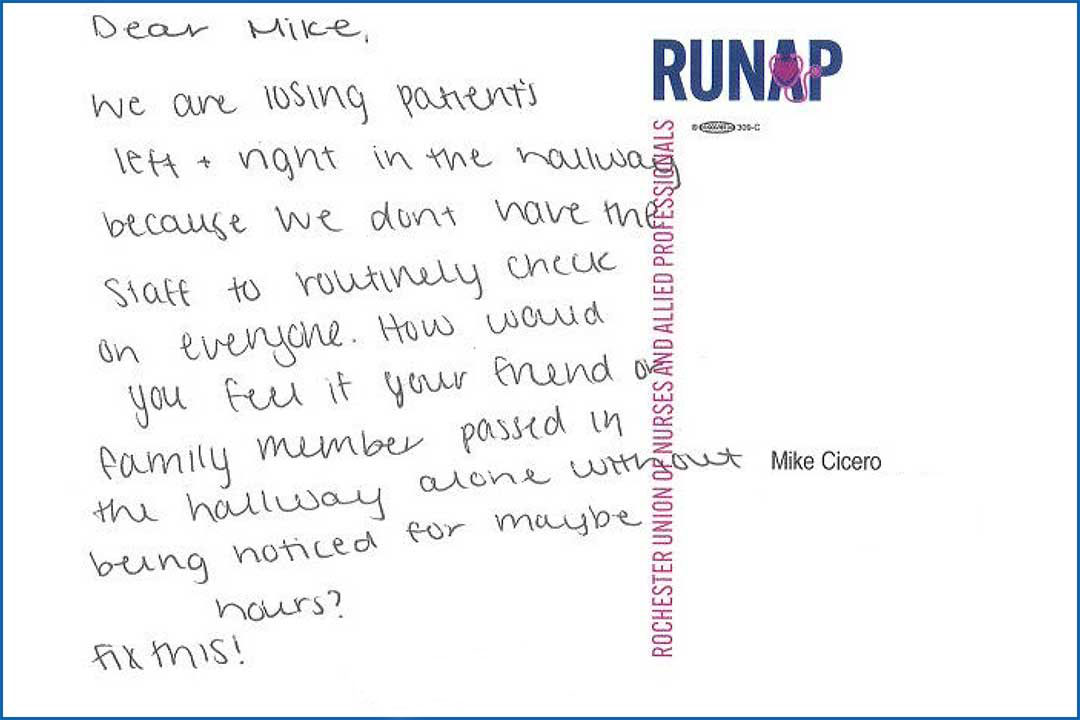 Dear Mike,
we are losing patient's
left + right in the hallway
because we dont have the
staff to routinely check
on everyone. How would
you feel if your friend or
family member passed in
the hallway alone without
being noticed for maybe
hours?
fix this!
RUNAP
309-C
ROCHESTER UNION OF NURSES AND ALLIED PROFESSIONALS
Mike Cicero